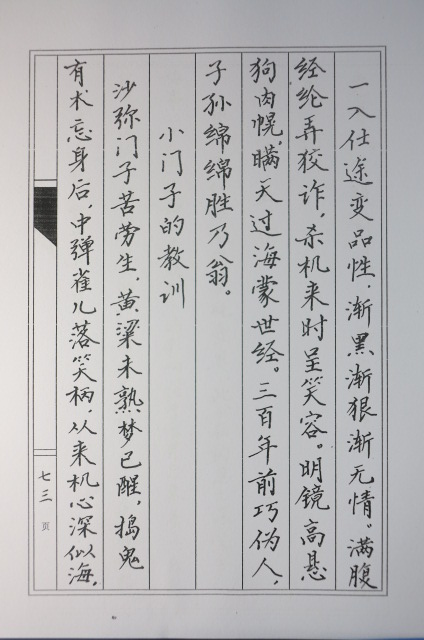 一入仕途变品性，渐黑渐狠渐无情。满腹
经纶弄狡诈，杀机来时呈笑容。明镜高悬
狗肉幌，瞒天过海蒙世经。三百年前巧伪人，
子孙绵绵胜乃翁。
小门子的教训
沙弥门子苦劳生，黄粱未熟梦已醒，捣鬼
有术忘身后，中弹雀儿落笑柄，从来机心深似海，
七三页